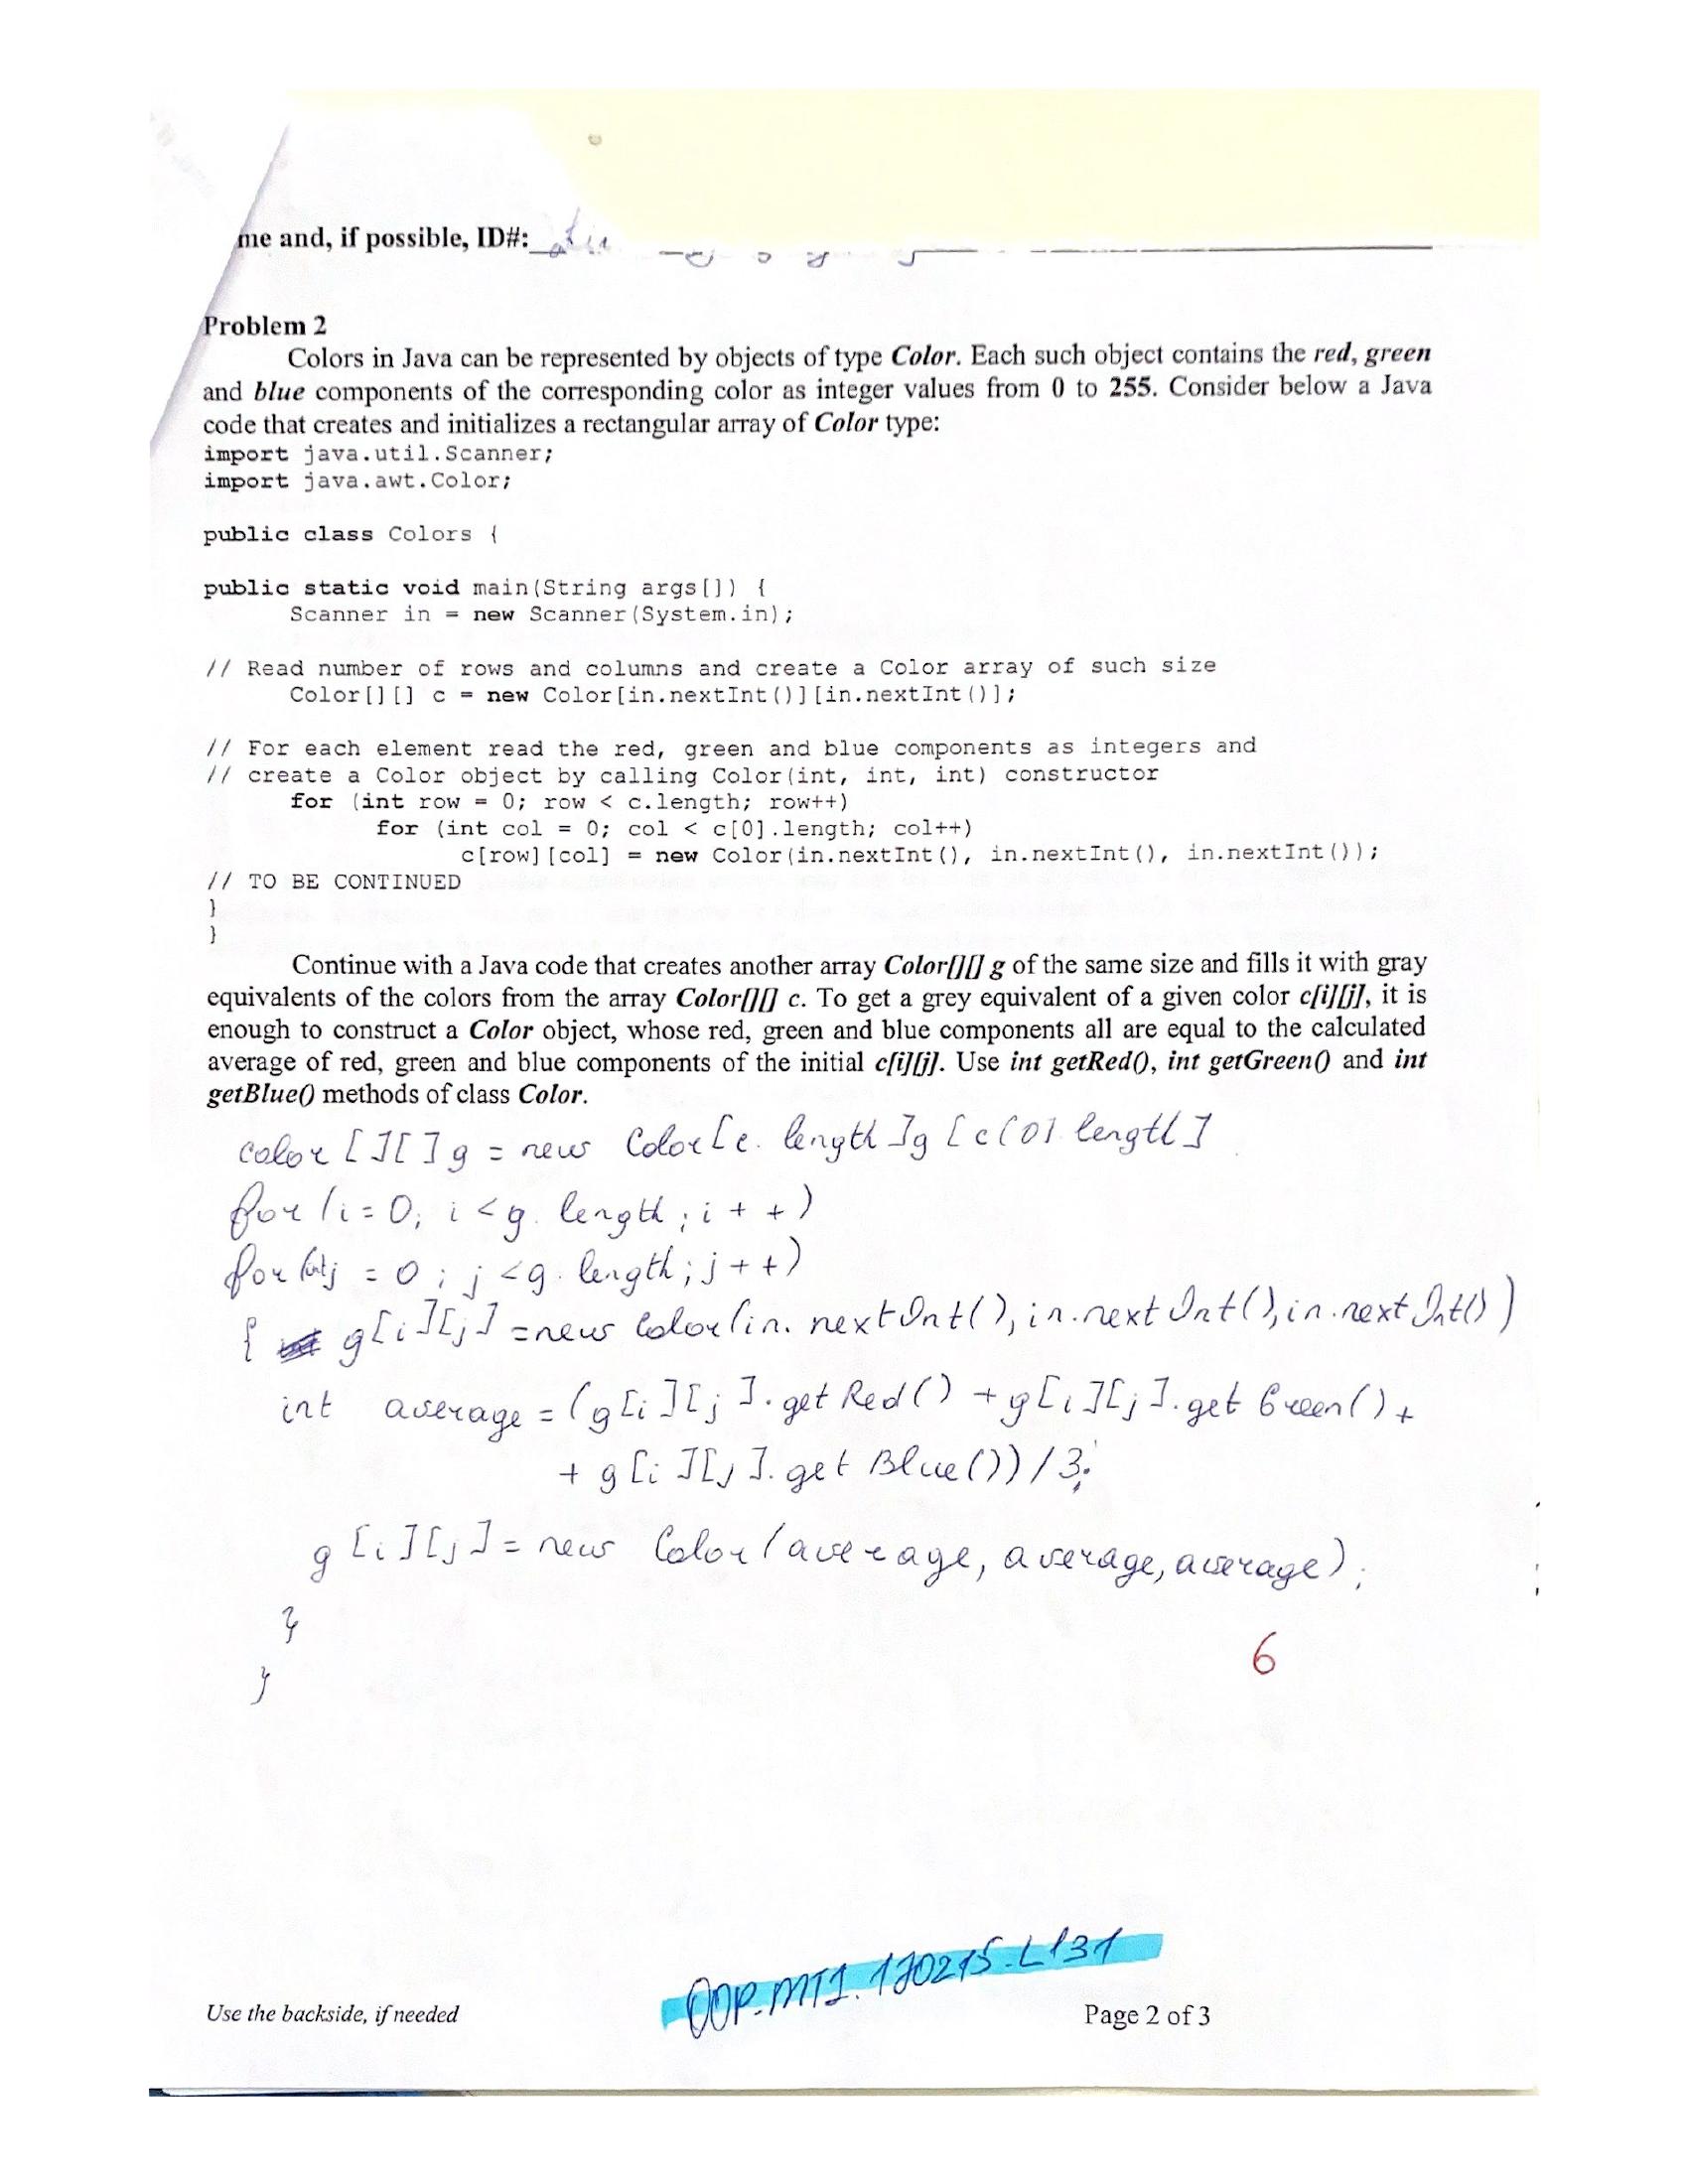 me and, if possible, ID#:
Problem 2
Colors in Java can be represented by objects of type Color. Each such object contains the red, green
and blue components of the corresponding color as integer values from 0 to 255. Consider below a Java
code that creates and initializes a rectangular array of Color type:
import java.util.Scanner;
import java.awt.Color;
public class Colors {
public static void main(String args[]) {
Scanner in = new Scanner(System.in);
// Read number of rows and columns and create a Color array of such size
Color[][] c = new Color[in.nextInt()][in.nextInt()];
// For each element read the red, green and blue components as integers and
// create a Color object by calling Color(int, int, int) constructor
for (int row = 0; row < c.length; row++)
for (int col = 0; col < c[0].length; col++)
c[row][col] = new Color(in.nextInt(), in.nextInt(), in.nextInt());
// TO BE CONTINUED
}
}
Continue with a Java code that creates another array Color[][] g of the same size and fills it with gray
equivalents of the colors from the array Color[][] c. To get a grey equivalent of a given color c[i][j], it is
enough to construct a Color object, whose red, green and blue components all are equal to the calculated
average of red, green and blue components of the initial c[i][j]. Use int getRed(), int getGreen() and int
getBlue() methods of class Color.
color [][] g = new Color[c. length]g [c[0]. length]
for (i = 0; i < g. length; i + +)
for (int j = 0; j < g. length; j + +)
{ g[i][j] = new Color(in. nextInt(), in.nextInt(), in.nextInt())
int average = (g[i][j]. getRed() + g[i][j]. getGreen() +
+ g[i][j]. getBlue()) / 3;
g[i][j] = new Color(average, average, average);
}
}
6
OOP.MT1.170215.L131
Use the backside, if needed
Page 2 of 3